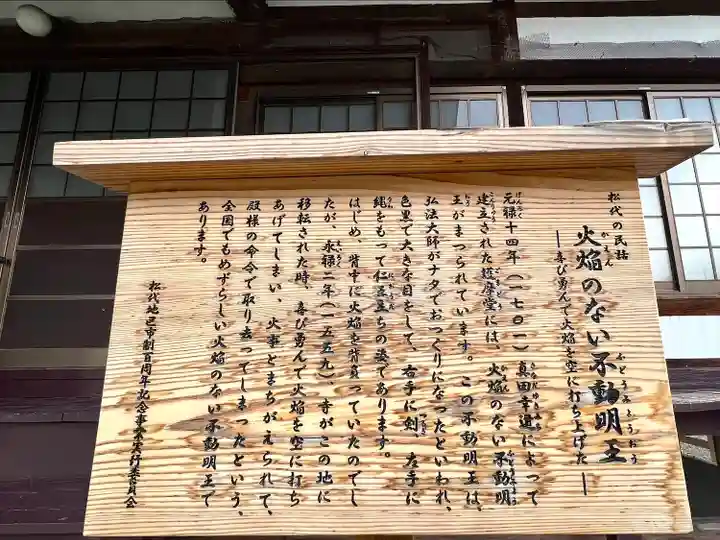 松代の民話
火焔のない不動明王
かえん
ふどうみょうおう
―喜び勇んで火焔を空に打ち上げた―
元禄十四年(一七〇一)真田幸道によって
げんろく
さなだゆきみち
建立された護摩堂には、火焔のない不動明
こんりゅう
王がまつられています。この不動明王は、
弘法大師がナタでおつくりになったといわれ、
色黒で大きな目をして、右手に剣、左手に
縄をもって仁王立ちの姿であります。
はじめ、背中に火焔を背負っていたのでし
たが、永禄二年(一五五九)、寺がこの地に
えいろく
移転された時、喜び勇んで火焔を空に打ち
あげてしまい、火事とまちがえられて、
殿様の命令で取り去ってしまったという、
全国でもめずらしい火焔のない不動明王で
あります。
松代地区市制百周年記念事業実行委員会